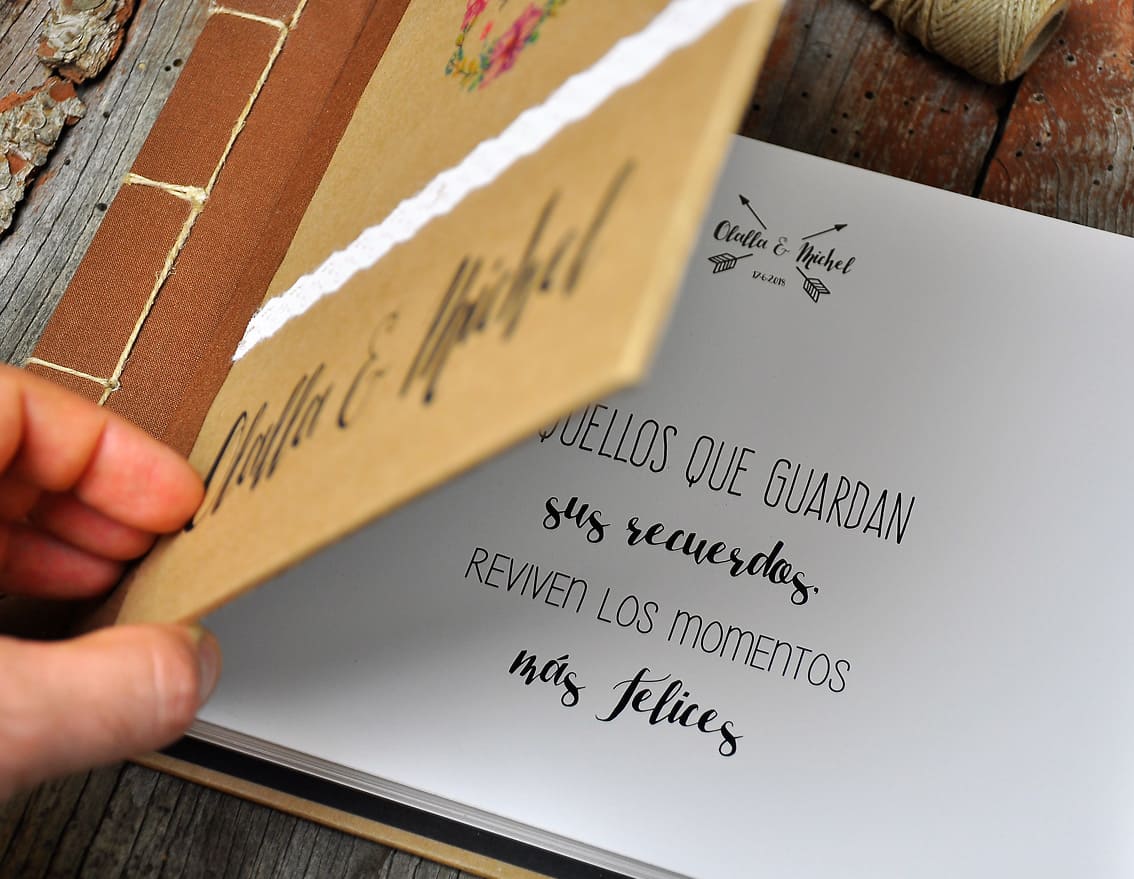 Olalla & Michel
Olalla & Michel
17·6·2018
AQUELLOS QUE GUARDAN
sus recuerdos,
REVIVEN LOS MOMENTOS
más felices